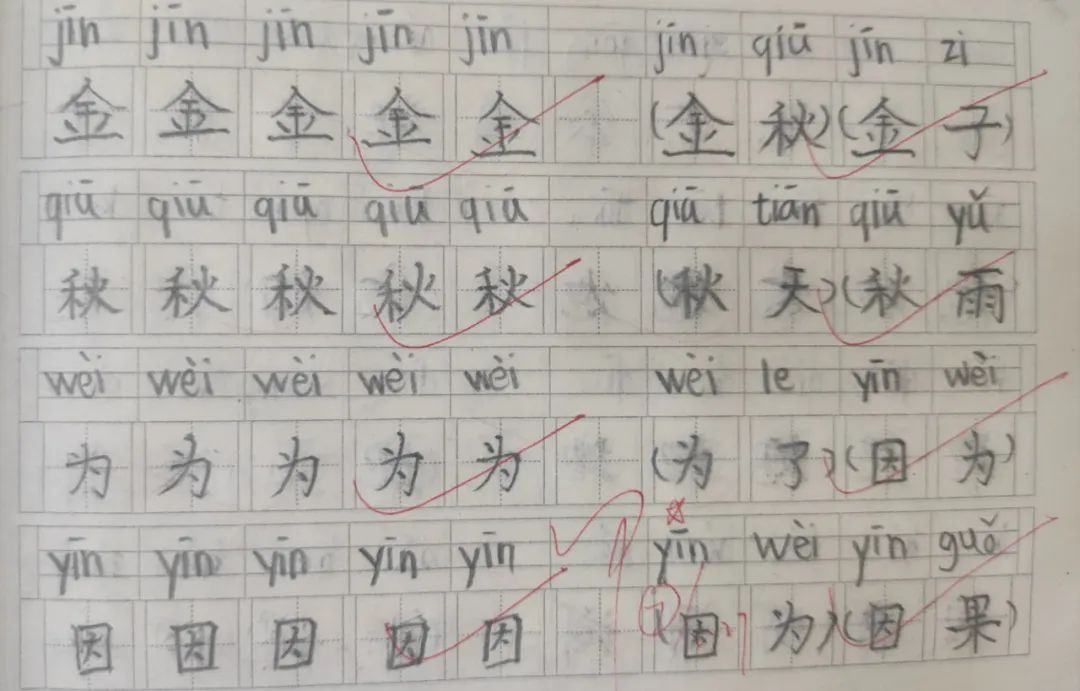 jīn jīn jīn jīn jīn jīn qiū jīn zi
金 金 金 金 金 (金 秋)(金 子)
qiū qiū qiū qiū qiū qiū tiān qiū yǔ
秋 秋 秋 秋 秋 (秋 天)(秋 雨)
wèi wèi wèi wèi wèi wèi le yīn wèi
为 为 为 为 为 (为 了)(因 为)
yīn yīn yīn yīn yīn yīn wèi yīn guǒ
因 因 因 因 因 (因 为)(因 果)